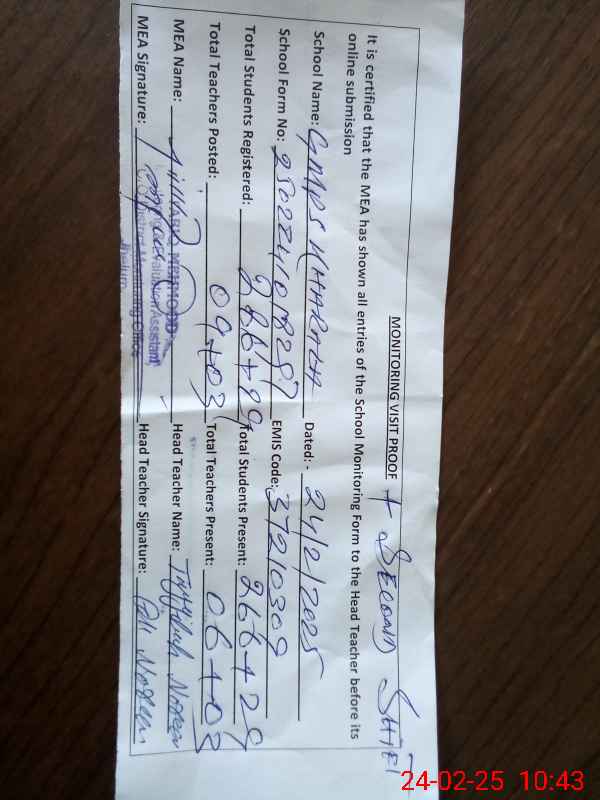 MONITORING VISIT PROOF + SECOND SHIFT
It is certified that the MEA has shown all entries of the School Monitoring Form to the Head Teacher before its
online submission
School Name: GMPS KHARALA Dated: - 24/2/2025
School Form No: EMIS Code: 37210309
Total Students Registered: Total Students Present:
Total Teachers Posted: 09+03 Total Teachers Present: 06+03
MEA Name: Head Teacher Name: Noreen
MEA Signature: Head Teacher Signature: Noreen
Evaluation Assistant
District Monitoring Office
Jhelum
24-02-25 10:43